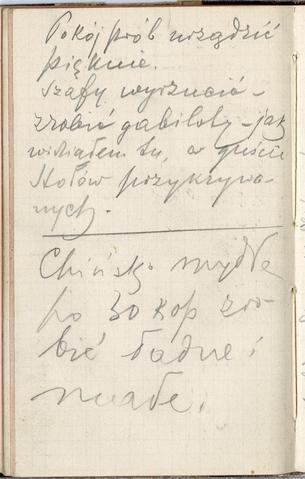 Pokój prób urządzić
pięknie.
Szafy wyrzucić -
zrobić gabiloty - jak
widziałem tu, w guście
stołów przykrywa-
nych.
Chińskie mydło
po 30 kop zro-
bić ładne i
małe.